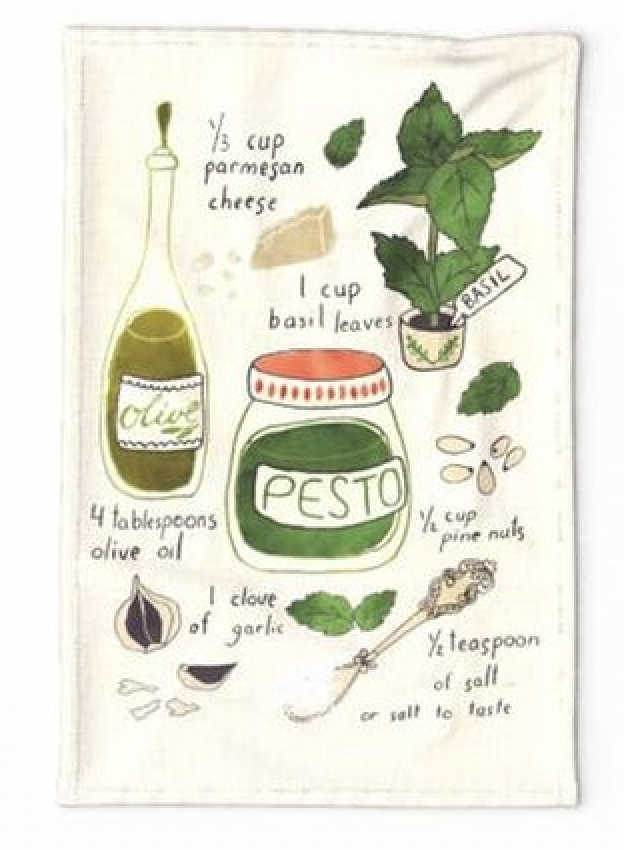 1/3 cup
parmesan
cheese
1 cup
basil leaves
BASIL
olive
PESTO
4 tablespoons
olive oil
1/2 cup
pine nuts
1 clove
of garlic
1/2 teaspoon
of salt
or salt to taste